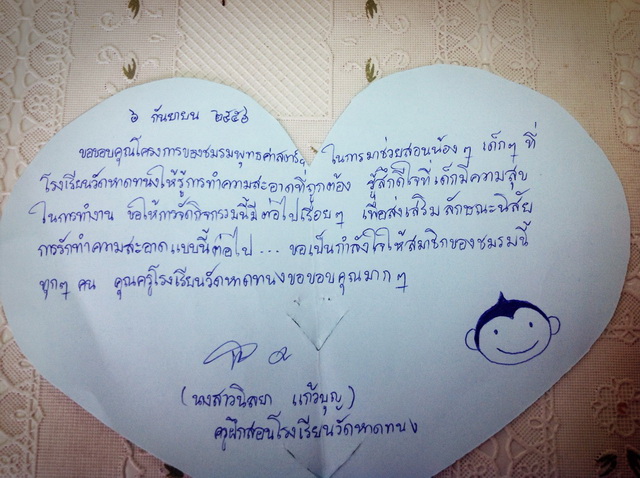 ๖ กันยายน ๒๕๕๖
ขอขอบคุณโครงการของชมรมพุทธศาสตร์ฯ ในการมาช่วยสอนน้องๆ เด็กๆ ที่
โรงเรียนวัดหาดทนงให้รู้การทำความสะอาดที่ถูกต้อง รู้สึกดีใจที่เด็กมีความสุข
ในการทำงาน ขอให้การจัดกิจกรรมนี้มีต่อไปเรื่อยๆ เพื่อส่งเสริมลักษณะนิสัย
การรักทำความสะอาดแบบนี้ต่อไป... ขอเป็นกำลังใจให้สมาชิกของชมรมนี้
ทุกๆ คน คุณครูโรงเรียนวัดหาดทนงขอขอบคุณมากๆ
(นางสาวนิลยา แก้วบุญ)
ครูฝึกสอนโรงเรียนวัดหาดทนง